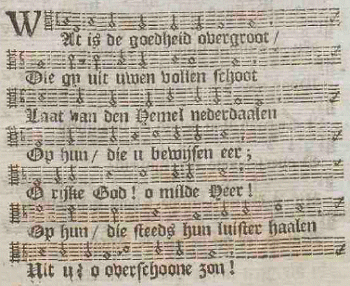 WAt is de goedheid overgroot/
Die gy uit uwen vollen schoot
Laat van den Hemel nederdaalen
Op hun/ die u bewijsen eer;
O rijke God! o milde Heer!
Op hun/ die steeds hun luister haalen
Uit u/ o overschoone zon!